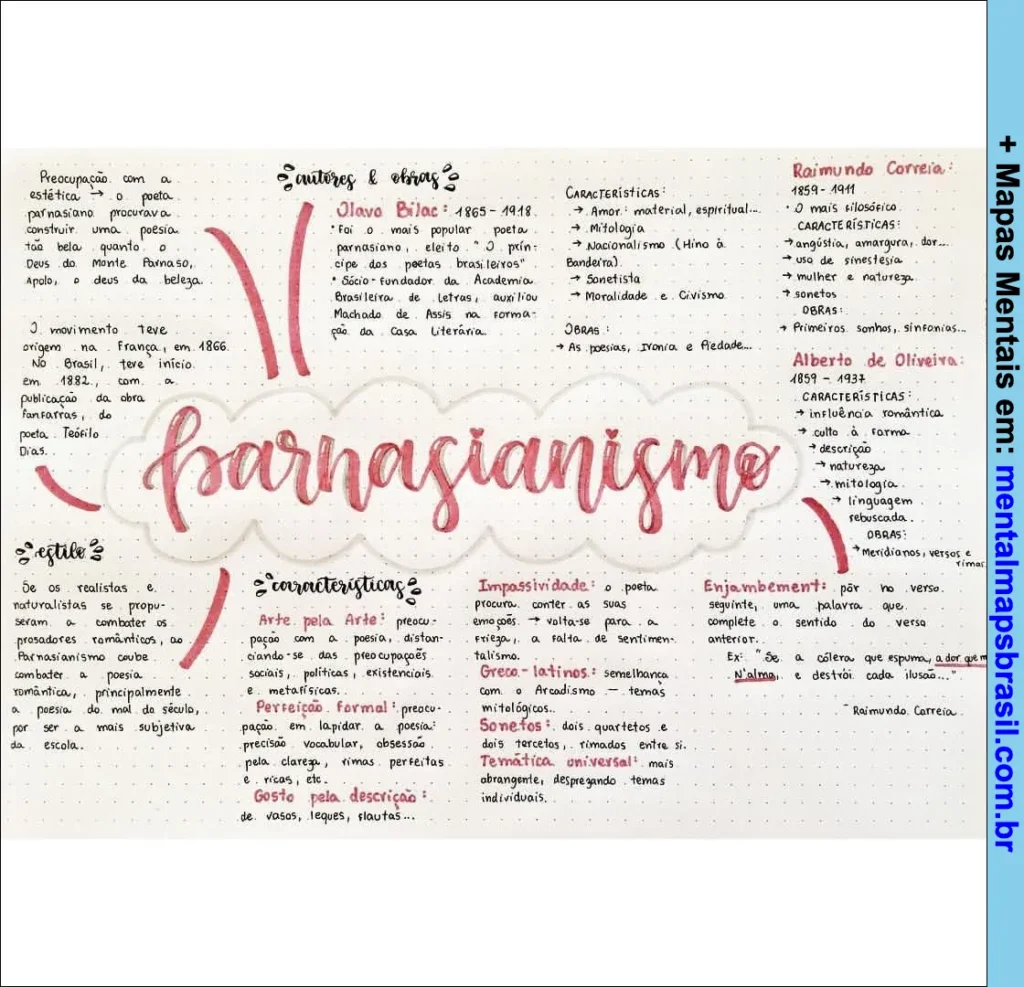 Preocupação com a
estética → o poeta
parnasiano procurava
construir uma poesia
tão bela quanto o
Deus do Monte Parnaso,
Apolo, o deus da beleza.
O movimento teve
origem na França, em 1866.
No Brasil, teve início
em 1882, com a
publicação da obra
Fanfarras, do
poeta Teófilo
Dias.
autores & obras
Olavo Bilac: 1865-1918.
• Foi o mais popular poeta
parnasiano, eleito "O prín-
cipe dos poetas brasileiros"
• Sócio-fundador da Academia
Brasileira de Letras, auxiliou
Machado de Assis na forma-
ção da Casa Literária.
Características:
→ Amor: material, espiritual...
→ Mitologia
→ Nacionalismo (Hino à
Bandeira)
→ Sonetista
→ Moralidade e Civismo
Obras:
→ As poesias, Ironia e Piedade...
Raimundo Correia:
1859-1911
• O mais filosófico
Características:
→ angústia, amargura, dor...
→ uso de sinestesia
→ mulher e natureza
→ sonetos
Obras:
→ Primeiros sonhos, sinfonias...
Alberto de Oliveira:
1859 - 1937
Características:
→ influência romântica
→ culto à forma
→ descrição
→ natureza
→ mitologia
→ linguagem
rebuscada.
Obras:
→ Meridianos, versos e
rimas
parnasianismo
estilo
Se os realistas e
naturalistas se propu-
seram a combater os
prosadores românticos, ao
Parnasianismo coube
combater a poesia
romântica, principalmente
a poesia do mal do século,
por ser a mais subjetiva
da escola.
características
Arte pela Arte: preocu-
pação com a poesia, distan-
ciando-se das preocupações
sociais, políticas, existenciais
e metafísicas.
Perfeição Formal: preocu-
pação em lapidar a poesia:
precisão vocabular, obsessão
pela clareza, rimas perfeitas
e ricas, etc.
Gosto pela descrição:
de vasos, leques, flautas...
Impassividade: o poeta
procura conter as suas
emoções → volta-se para a
frieza, a falta de sentimen-
talismo.
Greco-latinos: semelhança
com o Arcadismo — temas
mitológicos.
Sonetos: dois quartetos e
dois tercetos, rimados entre si.
Temática universal: mais
abrangente, desprezando temas
individuais.
Enjambement: pôr no verso
seguinte, uma palavra que
complete o sentido do verso
anterior.
Ex: "Se a cólera que espuma, a dor que m
N'alma, e destrói cada ilusão..."
- Raimundo Correia
+ Mapas Mentais em: mentalmapsbrasil.com.br